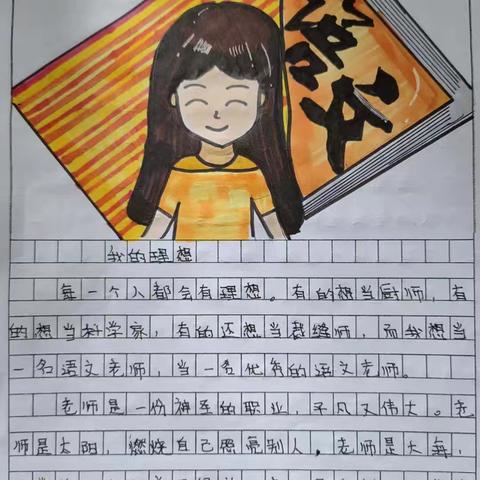 语文
我的理想
每一个人都会有理想。有的想当厨师，有
的想当科学家，有的还想当裁缝师，而我想当
一名语文老师，当一名优秀的语文老师。
老师是一份神圣的职业，平凡又伟大。老
师是太阳，燃烧自己照亮别人。老师是大海，